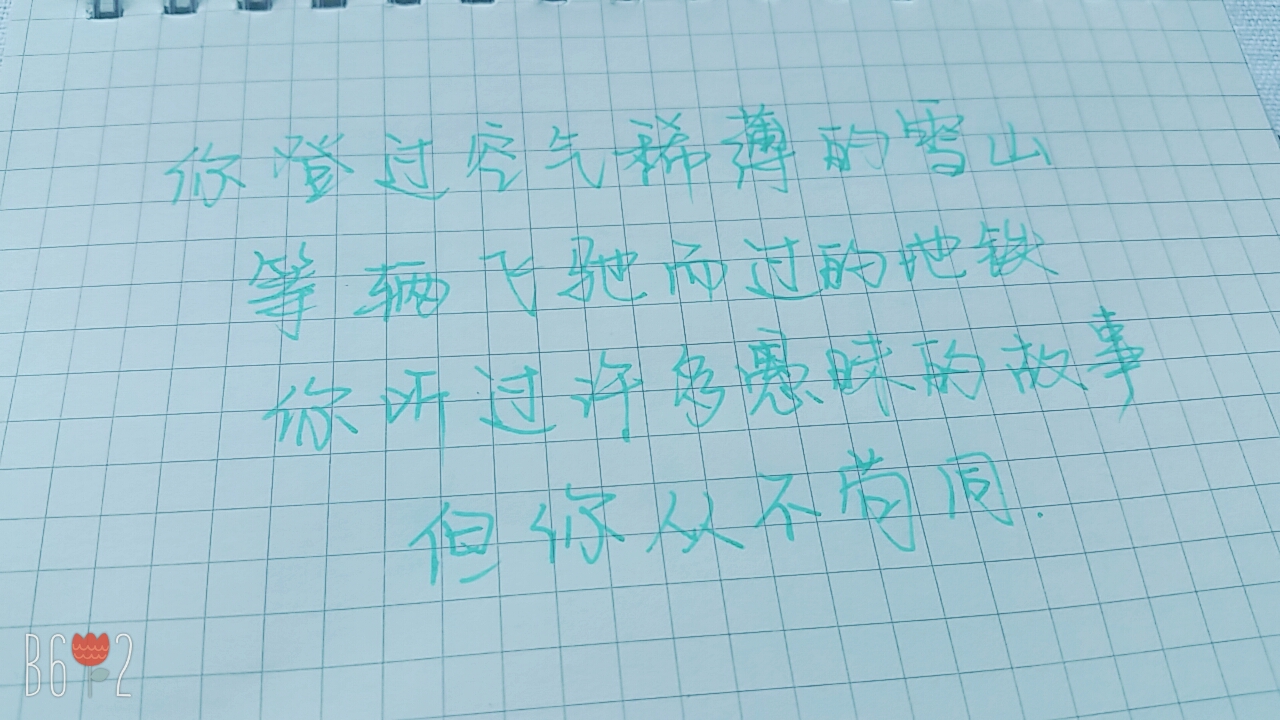 你登过空气稀薄的雪山
等辆飞驰而过的地铁
你听过许多愚昧的故事
但你从不苟同.
B612